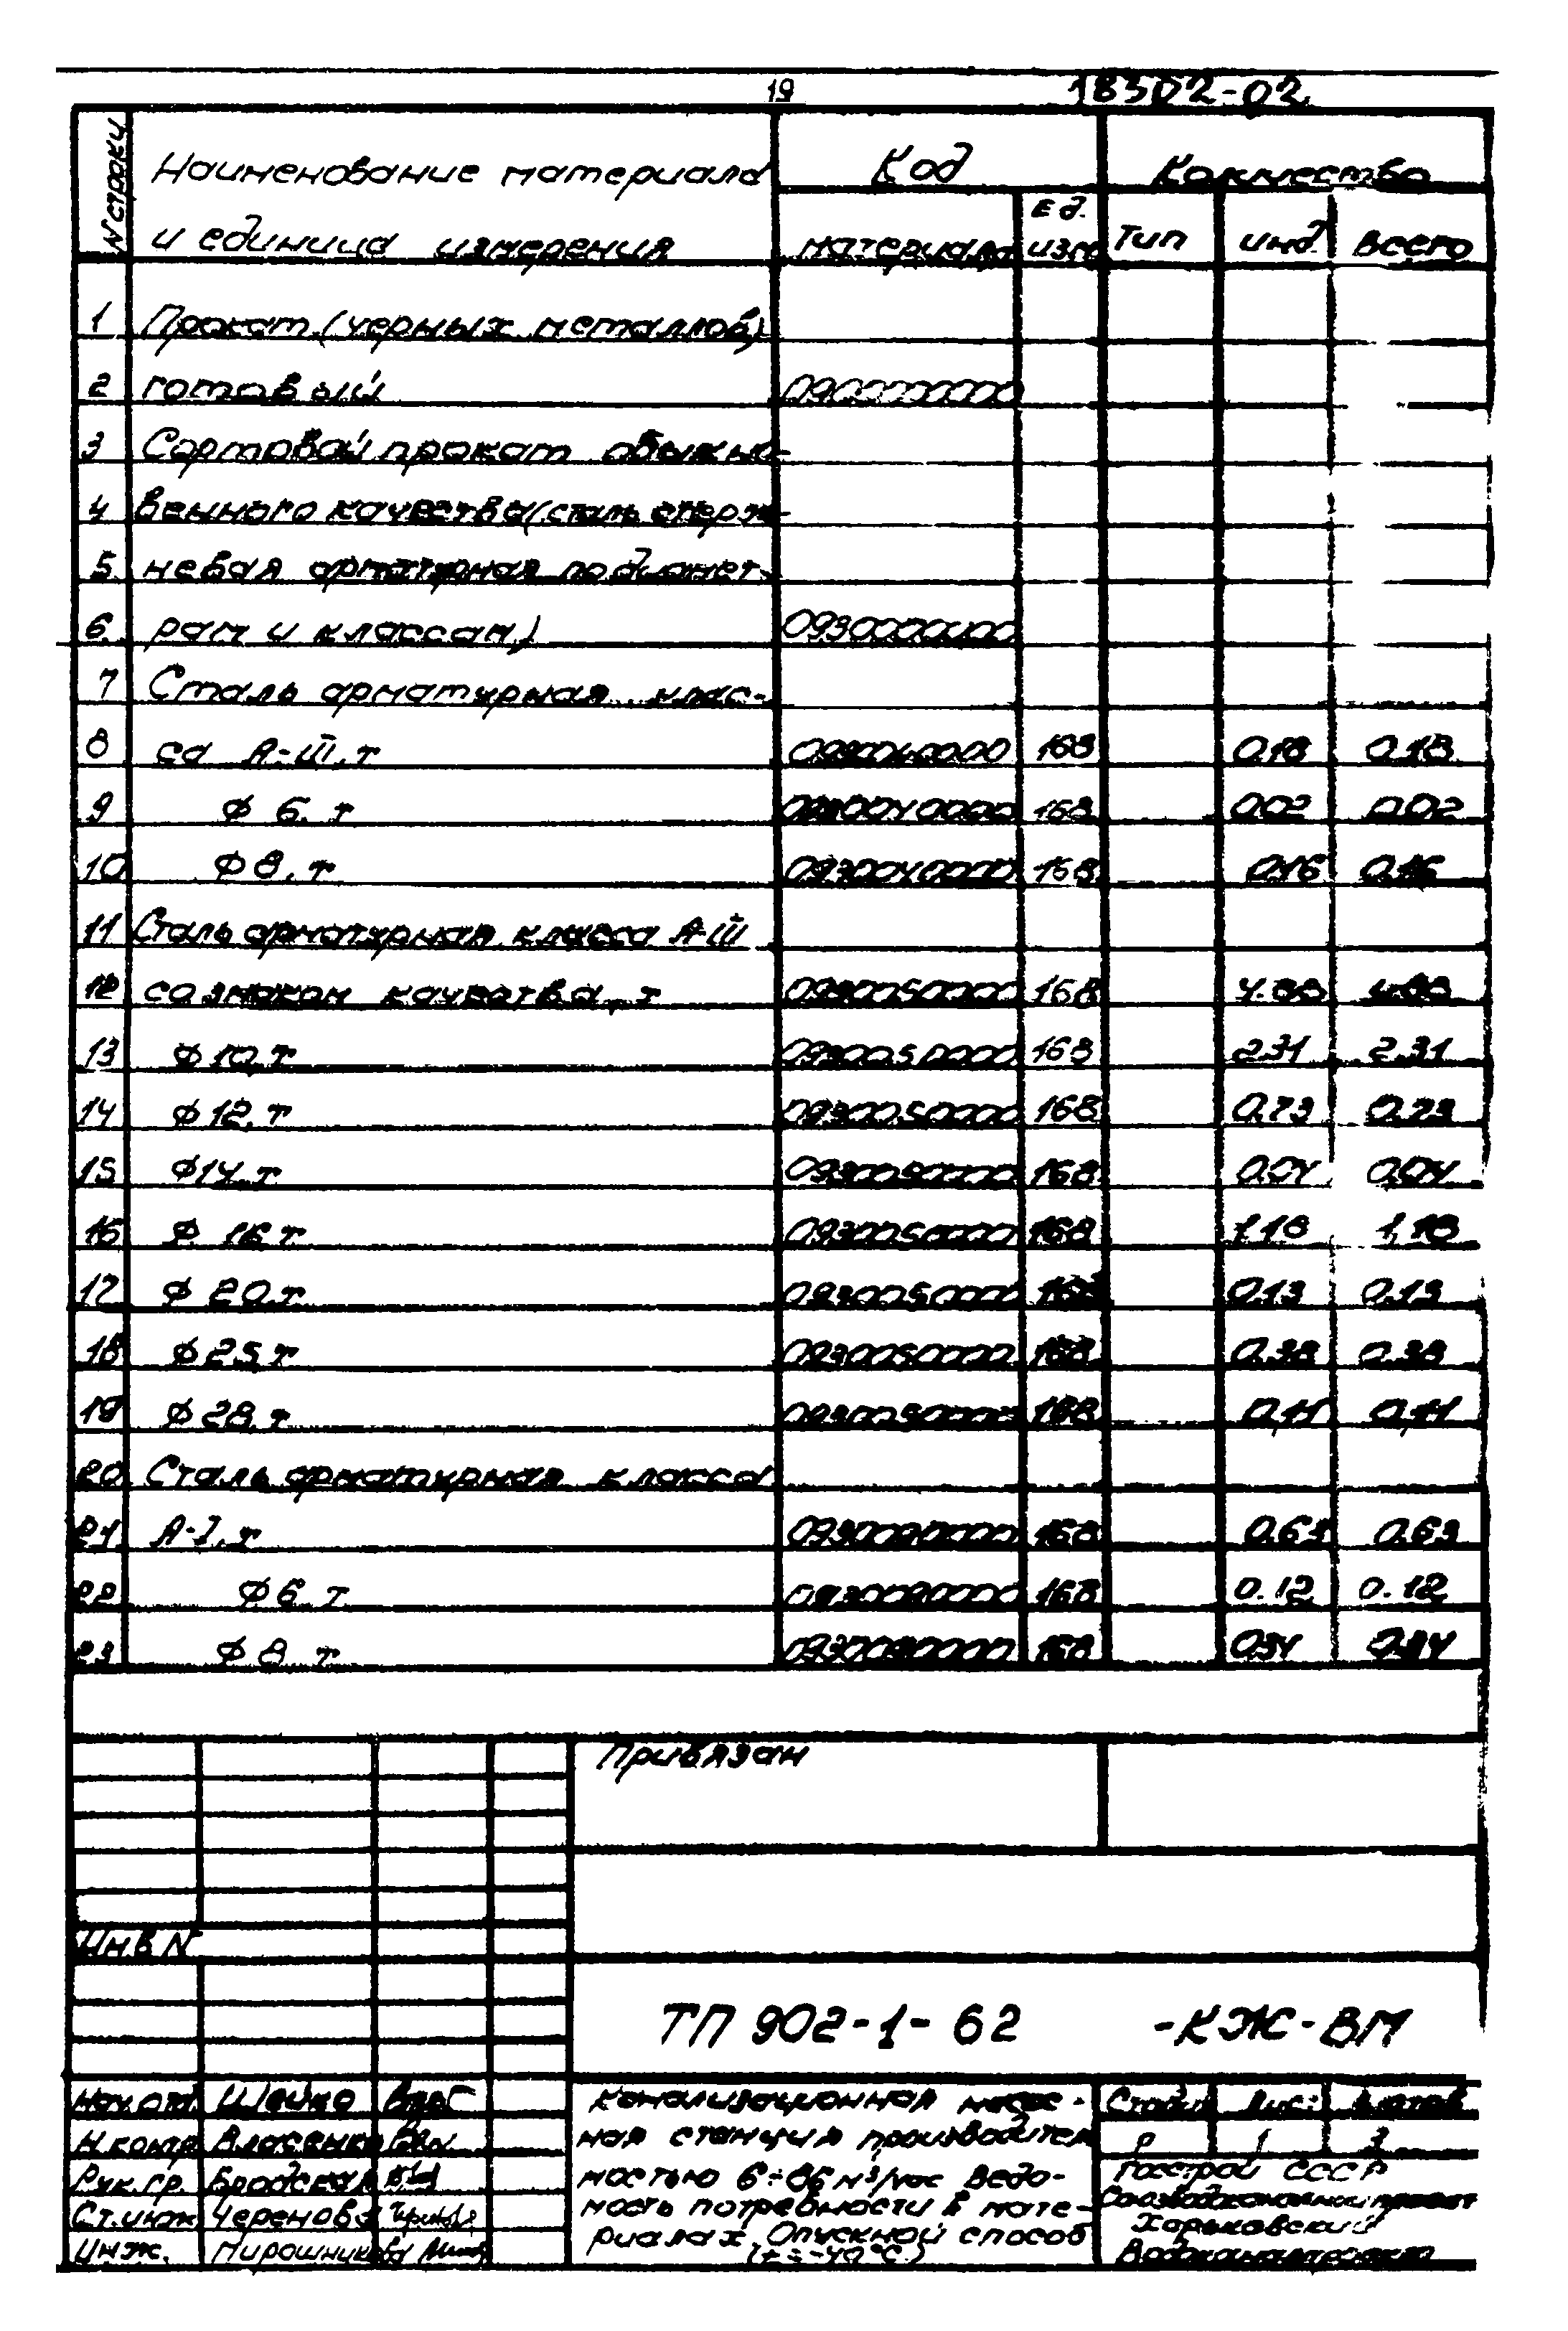 19 18302-02
N строки Наименование материала и единица измерения Код Количество
материала Ед. изм Тип инд. всего
1 Прокат (черных металлов)
2 готовый 0900000000
3 Сортовой прокат обыкно-
4 венного качества (сталь стерж-
5 невая арматурная по диамет-
6 рам и классам) 0930000000
7 Сталь арматурная клас-
8 са А-III, т 0930040000 168 0.18 0.18
9 Ф 6. т 0930040000 168 0.02 0.02
10 Ф 8. т 0930040000 168 0.16 0.16
11 Сталь арматурная класса А-III
12 со знаком качества, т 0930050000 168
13 Ф 10. т 0930050000 168 2.31 2.31
14 Ф 12. т 0930050000 168 0.73 0.73
15 Ф 14. т 0930050000 168 0.04 0.04
16 Ф 16 т 0930050000 168 1.18 1.18
17 Ф 20. т 0930050000 168 0.13 0.13
18 Ф 25 т 0930050000 168 0.38 0.38
19 Ф 28. т 0930050000 168 0.11 0.11
20 Сталь арматурная класса
21 А-I. т 168 0.63 0.63
22 Ф 6 т 168 0.12 0.12
23 Ф 8 т 168
Привязан
Инв N
ТП 902-1-62 -КЖ-ВМ
Нач.отд Шейко
Н.контр Власенко
Рук.гр. Бродская
Ст.инж.
Инж.
Канализационная насос-
ная станция производитель
ностью 6÷86 м³/час Ведо-
мость потребности в мате-
риалах. Опускной способ
(t = -40°С)
Стадия Лист Листов
Р 1 3
Госстрой СССР
Союзводоканалниипроект
Харьковский
Водоканалпроект